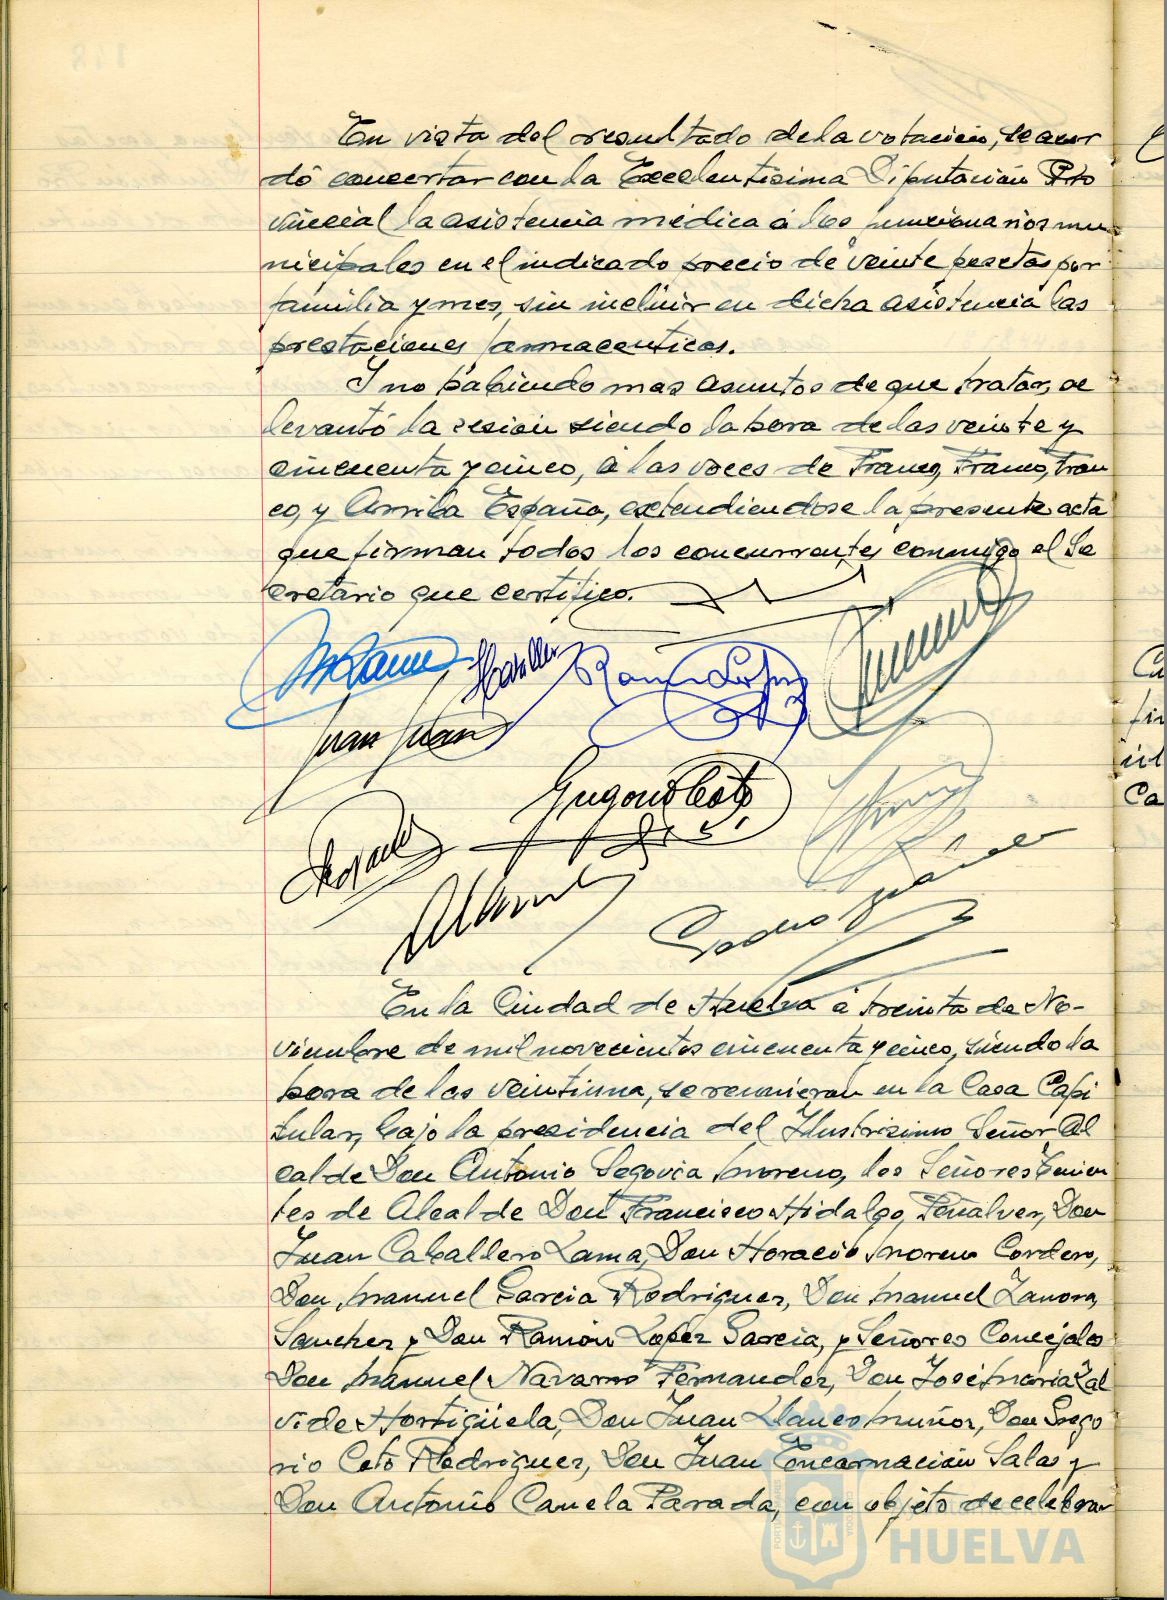 En vista del resultado de la votación, se acor
dó concertar con la Excelentísima Diputación Pro
vincial la asistencia médica á los funcionarios mu
nicipales en el indicado precio de veinte pesetas por
familia y mes, sin incluir en dicha asistencia las
prestaciones farmaceuticas.
Y no habiendo mas asuntos de que tratar, se
levantó la sesión siendo la hora de las veinte y
cincuenta y cinco, á las voces de Franco, Franco, Fran
co, y Arriba España, extendiendose la presente acta
que firman todos los concurrentes conmigo el Se
cretario que certifico.
Ramón López
Juan
Gregorio Coto
Pedro
En la Ciudad de Huelva á treinta de No-
viembre de mil novecientos cincuenta y cinco, siendo la
hora de las veintiuna, se reunieron en la Casa Capi
tular, bajo la presidencia del Ilustrisimo Señor Al
calde Don Antonio Segovia Moreno, los Señores Tenien
tes de Alcalde Don Francisco Hidalgo Peñalver, Don
Juan Caballero Lama, Don Horacio Moreno Cordero,
Don Manuel Garcia Rodriguez, Don Manuel Zamora
Sanchez y Don Ramón Lopez Garcia, y Señores Concejales
Don Manuel Navarro Fernandez, Don José Maria Zal
vide Hortigüela, Don Juan Llanes Muñoz, Don Grego
rio Coto Rodriguez, Don Juan Encarnación Salas y
Don Antonio Canela Parada, con objeto de celebrar
HUELVA